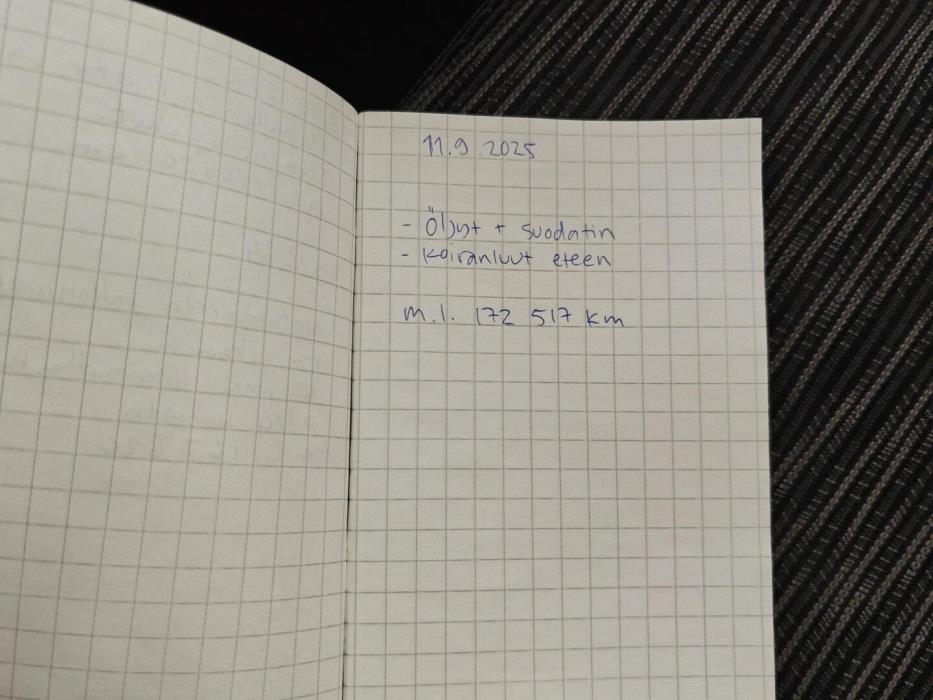 11.9.2025
- Öljyt + suodatin
- Koiranluut eteen
m.l. 172 517 km